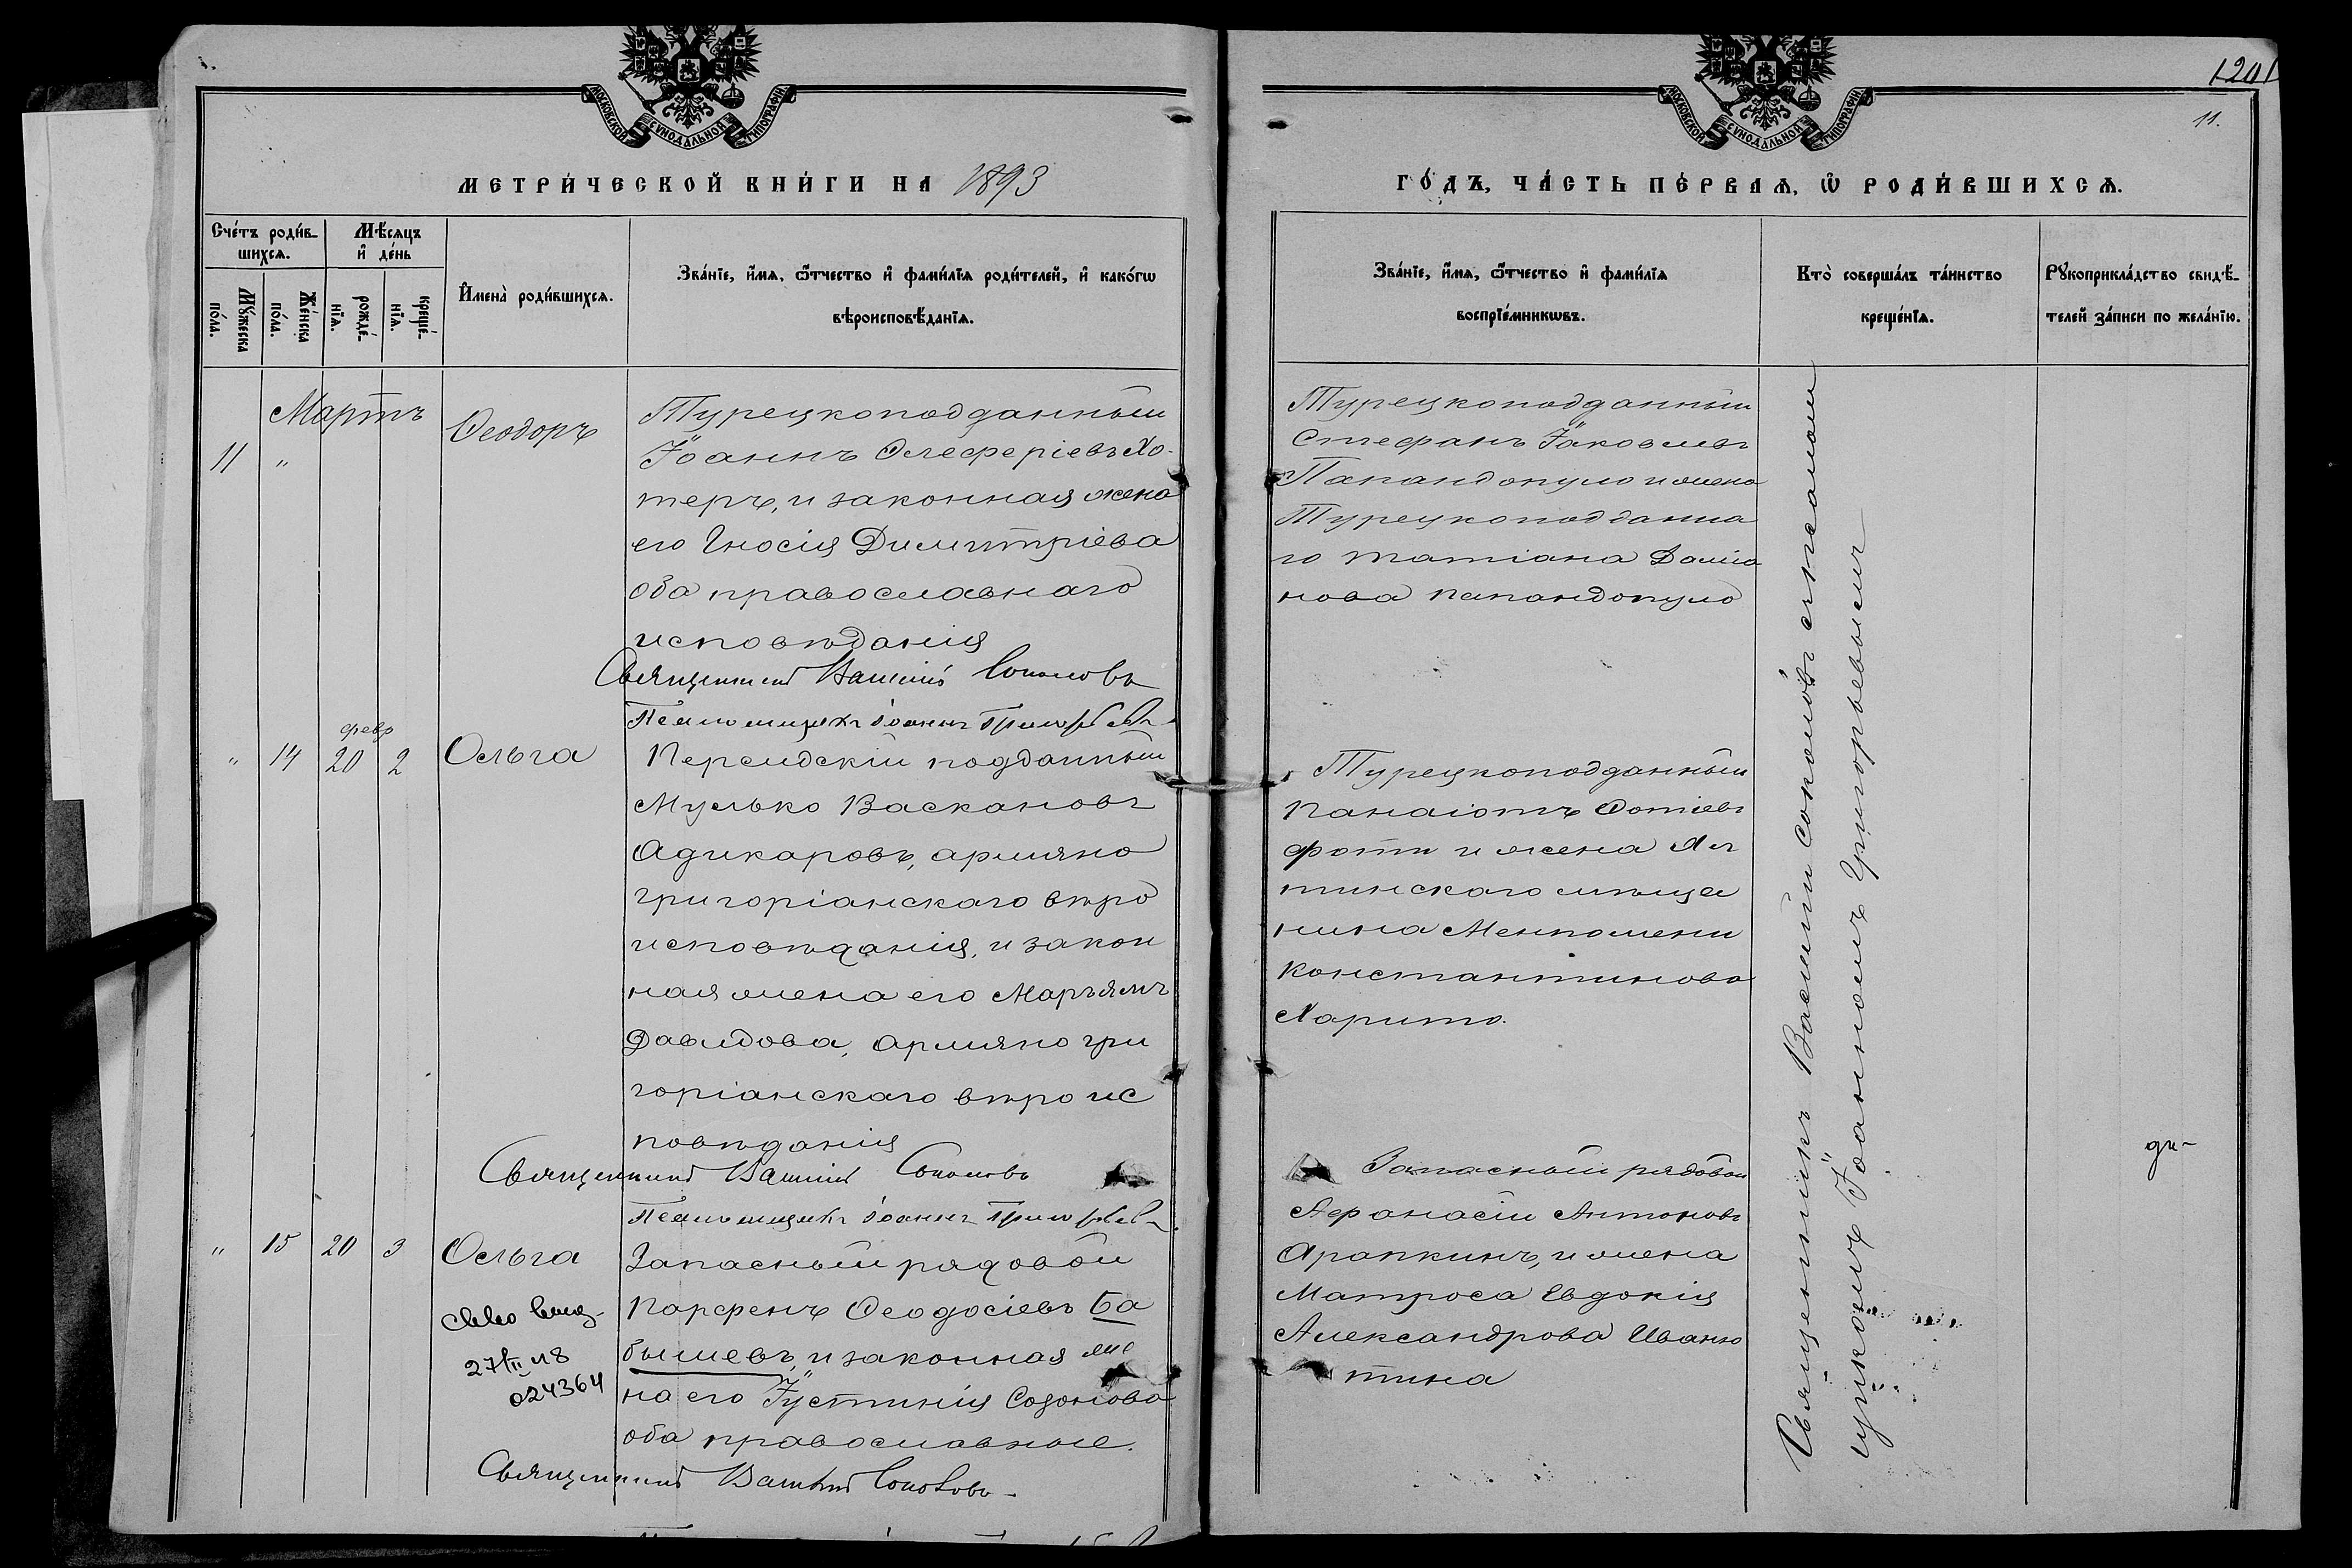 МОСКОВСКОЙ СѴНОДАЛЬНОЙ ТИПОГРАФІИ
МЕТРИ́ЧЕСКОЙ КНИ́ГИ НА 1893
Сче́тъ роди́в-
шихсѧ.
Мѣ́сѧцъ
и҆ де́нь
И҆мена̀ роди́вшихсѧ.
Зва́нїе, и҆́мѧ, ѻ҆́тчество и҆ фами́лїѧ роди́телей, и҆ како́гѡ
вѣроисповѣ́данїѧ.
Мꙋ́жеска
по́ла.
Же́нска
по́ла.
рожде́-
нїѧ.
креще́-
нїѧ.
Мартъ
11 "
Ѳеодоръ
Турецкоподданный
Іоаннъ Елеферіевъ Хо-
теръ, и законная жена
его Димитріева
оба православнаго
исповѣданія
Священникъ Василій Соколовъ
Псаломщикъ Іоаннъ Григорьевъ
февр
" 14 20 2 Ольга
Персидскій подданный
Мулько Васкановъ
Адикаровъ, армяно
григоріанскаго вѣро
исповѣданія, и закон
ная жена его Марьямъ
Давидова, армяно гри
горіанскаго вѣроис
повѣданія
Священникъ Василій Соколовъ
Псаломщикъ Іоаннъ Григорьевъ
" 15 20 3 Ольга
Запасный рядовой
Парфенъ Ѳеодосіевъ Ба
бышевъ, и законная же
на его Іустинія Созонова
оба православные.
27/II 18
024364
Священникъ Василій Соколовъ
1201
11.
МОСКОВСКОЙ СѴНОДАЛЬНОЙ ТИПОГРАФІИ
ГО́ДЪ, ЧА́СТЬ ПЕ́РВАѦ, Ѡ҆ РОДИ́ВШИХСѦ.
Зва́нїе, и҆́мѧ, ѻ҆́тчество и҆ фами́лїѧ
воспрїе́мникѡвъ.
Кто̀ соверша́лъ та́инство
креще́нїѧ.
Рꙋкоприкла́дство свидѣ́-
телей за́писи по жела́нїю.
Турецкоподданный
Стефанъ Іаковлевъ
Папандопуло и жена
Турецкоподданна
го Татіана Даміа
нова Папандопуло
Турецкоподданный
Панаіотъ Фотіевъ
Фоти и жена Ял
тинскаго мѣща
нина Мельпомени
Константинова
Харито.
Запасный рядовой
Аѳанасій Антоновъ
Арапкинъ, и жена
Матроса Евдокія
Александрова Иваню
тина
Священникъ Василій Соколовъ съ псалом
щикомъ Іоанномъ Григорьевымъ